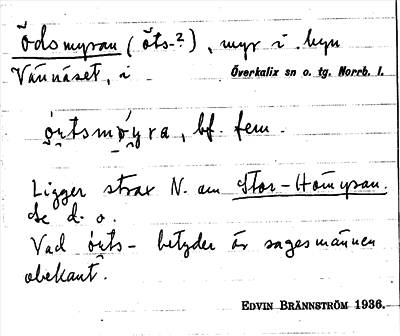 Ödsmyran (öts-?), myr i byn
Vännäset, i Överkalix sn o. tg. Norrb. l.
ó̤rtsmó̤yra, bf. fem.
Ligger strax N. om Stor-Hömyran.
Se d. o.
Vad ó̤rts- betyder är sagesmannen
obekant.
EDVIN BRÄNNSTRÖM 1936.